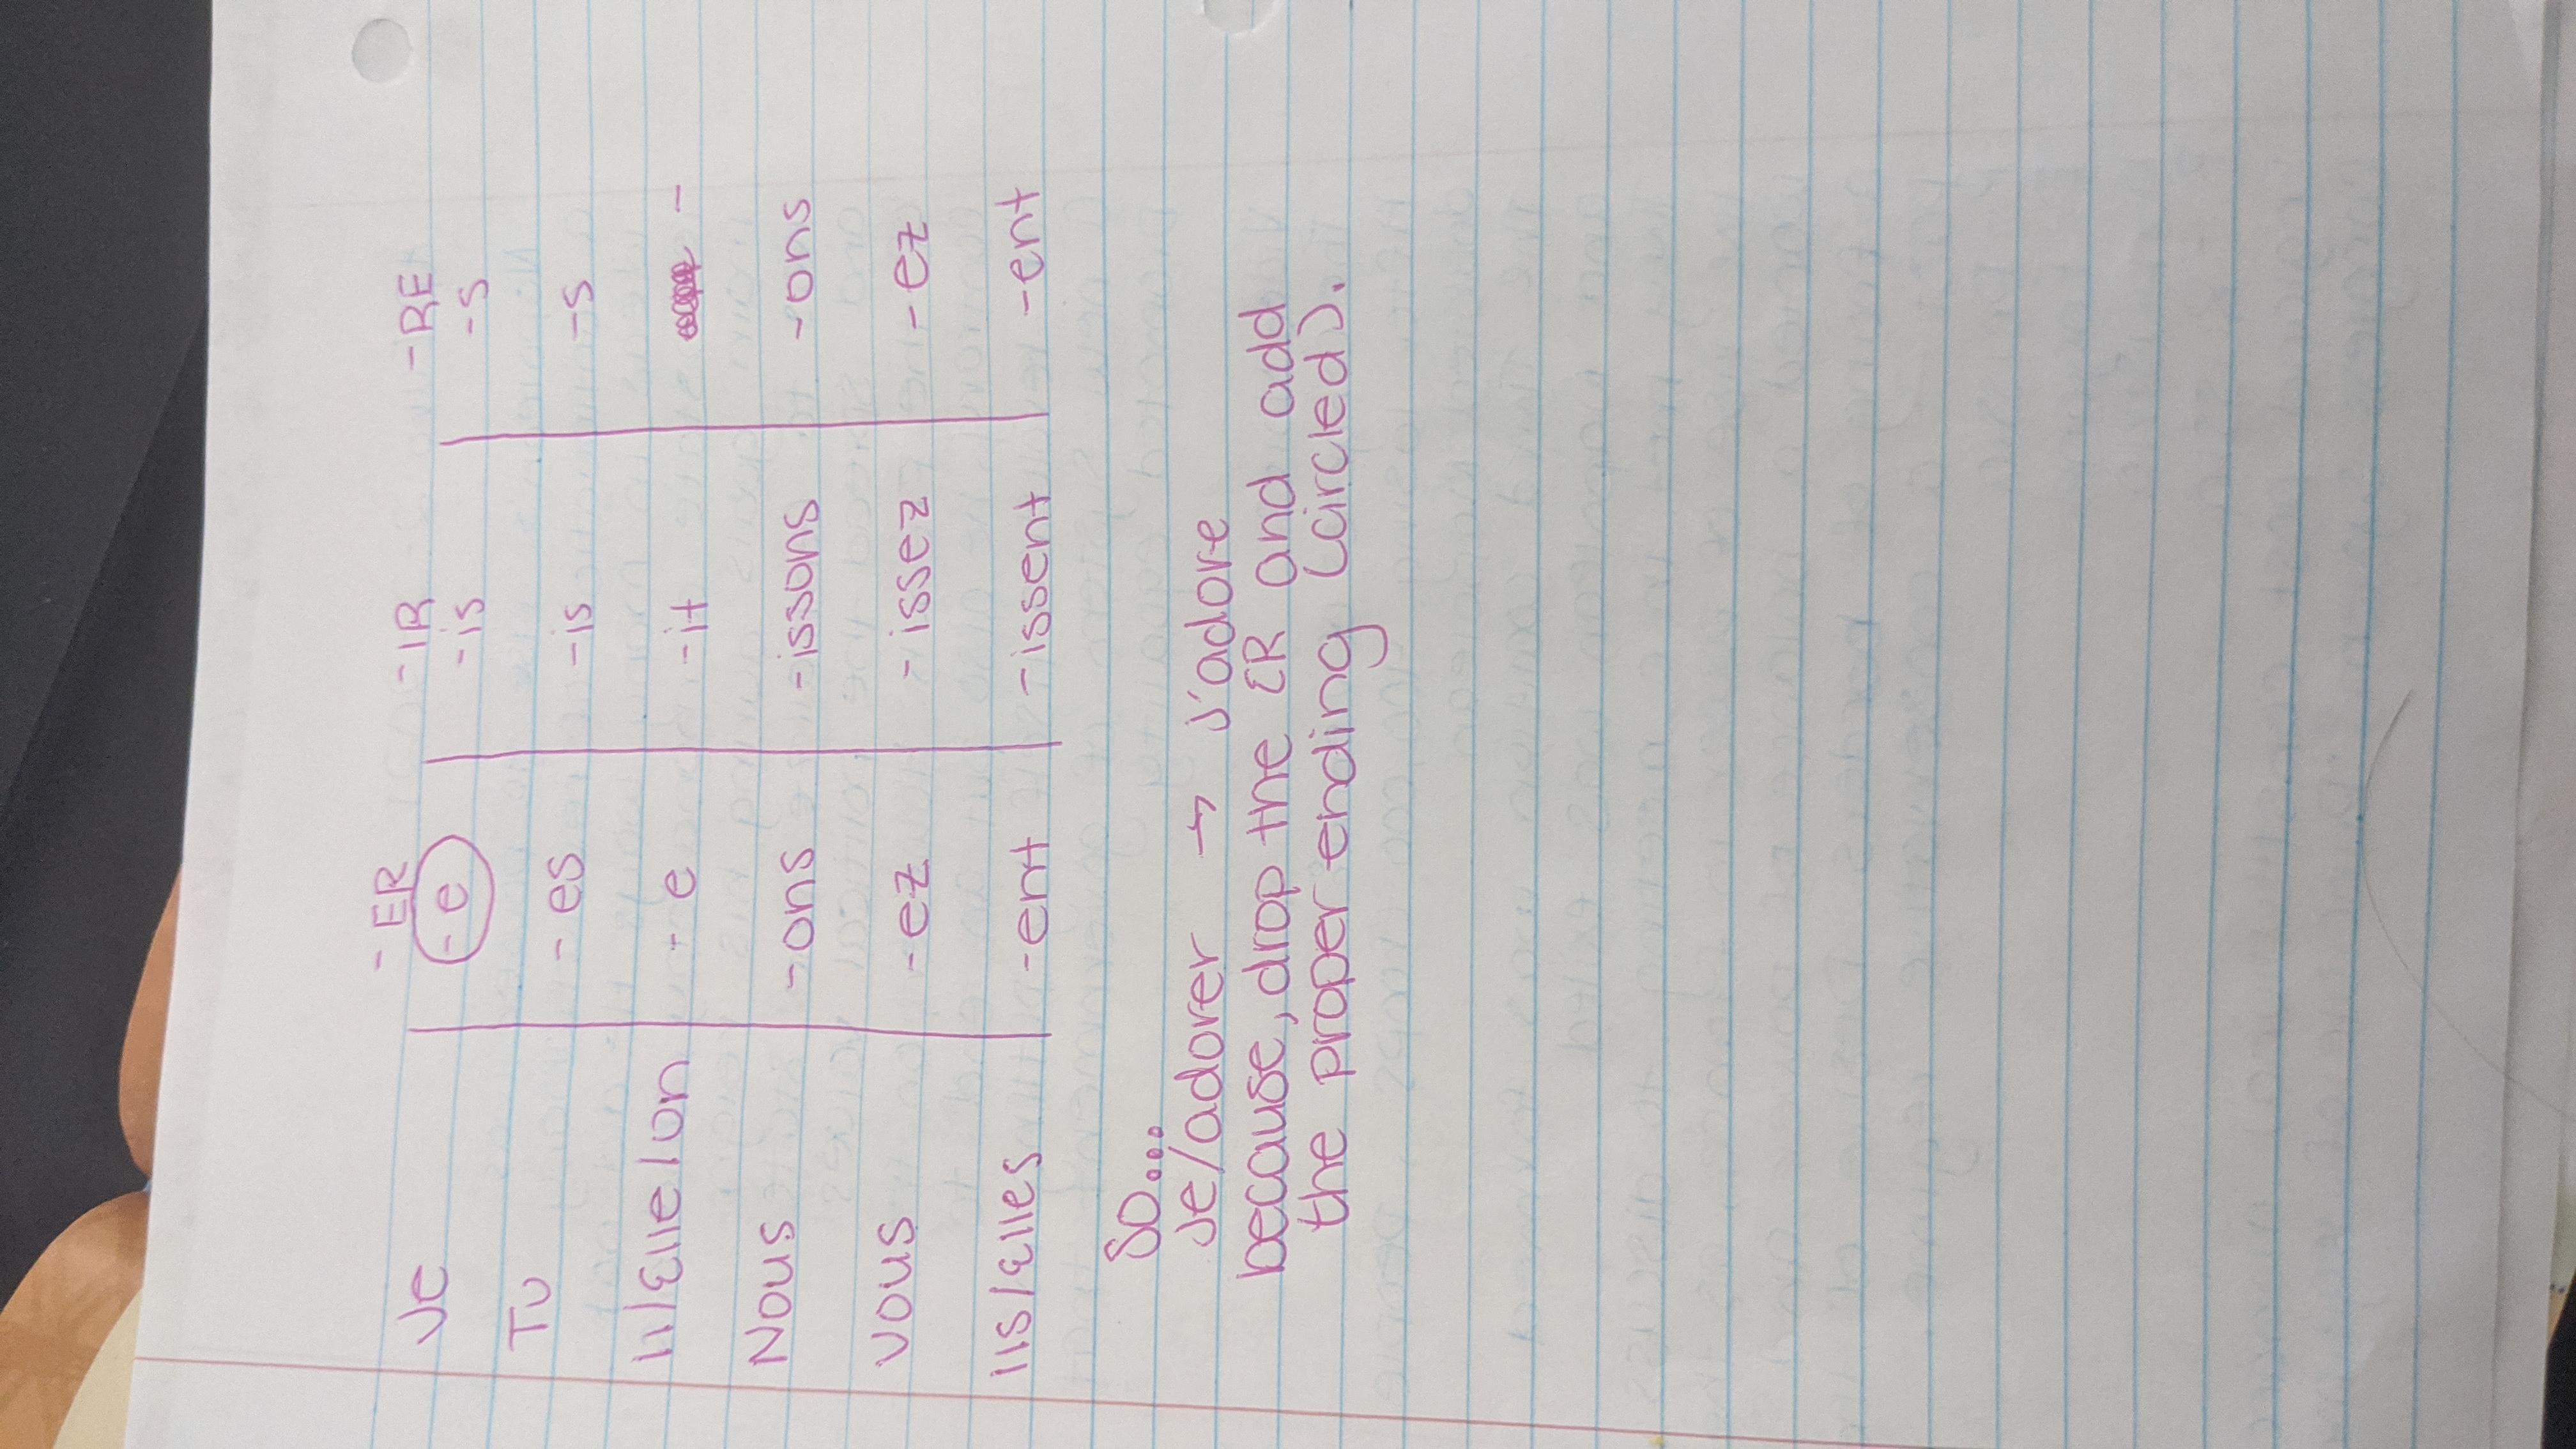 -ER -IR -RE
Je -e -is -s
Tu -es -is -s
Il/Elle/on -e -it -
Nous -ons -issons -ons
Vous -ez -issez -ez
Ils/Elles -ent -issent -ent
So....
Je/adorer → J'adore
because, drop the ER and add
the proper ending (circled).